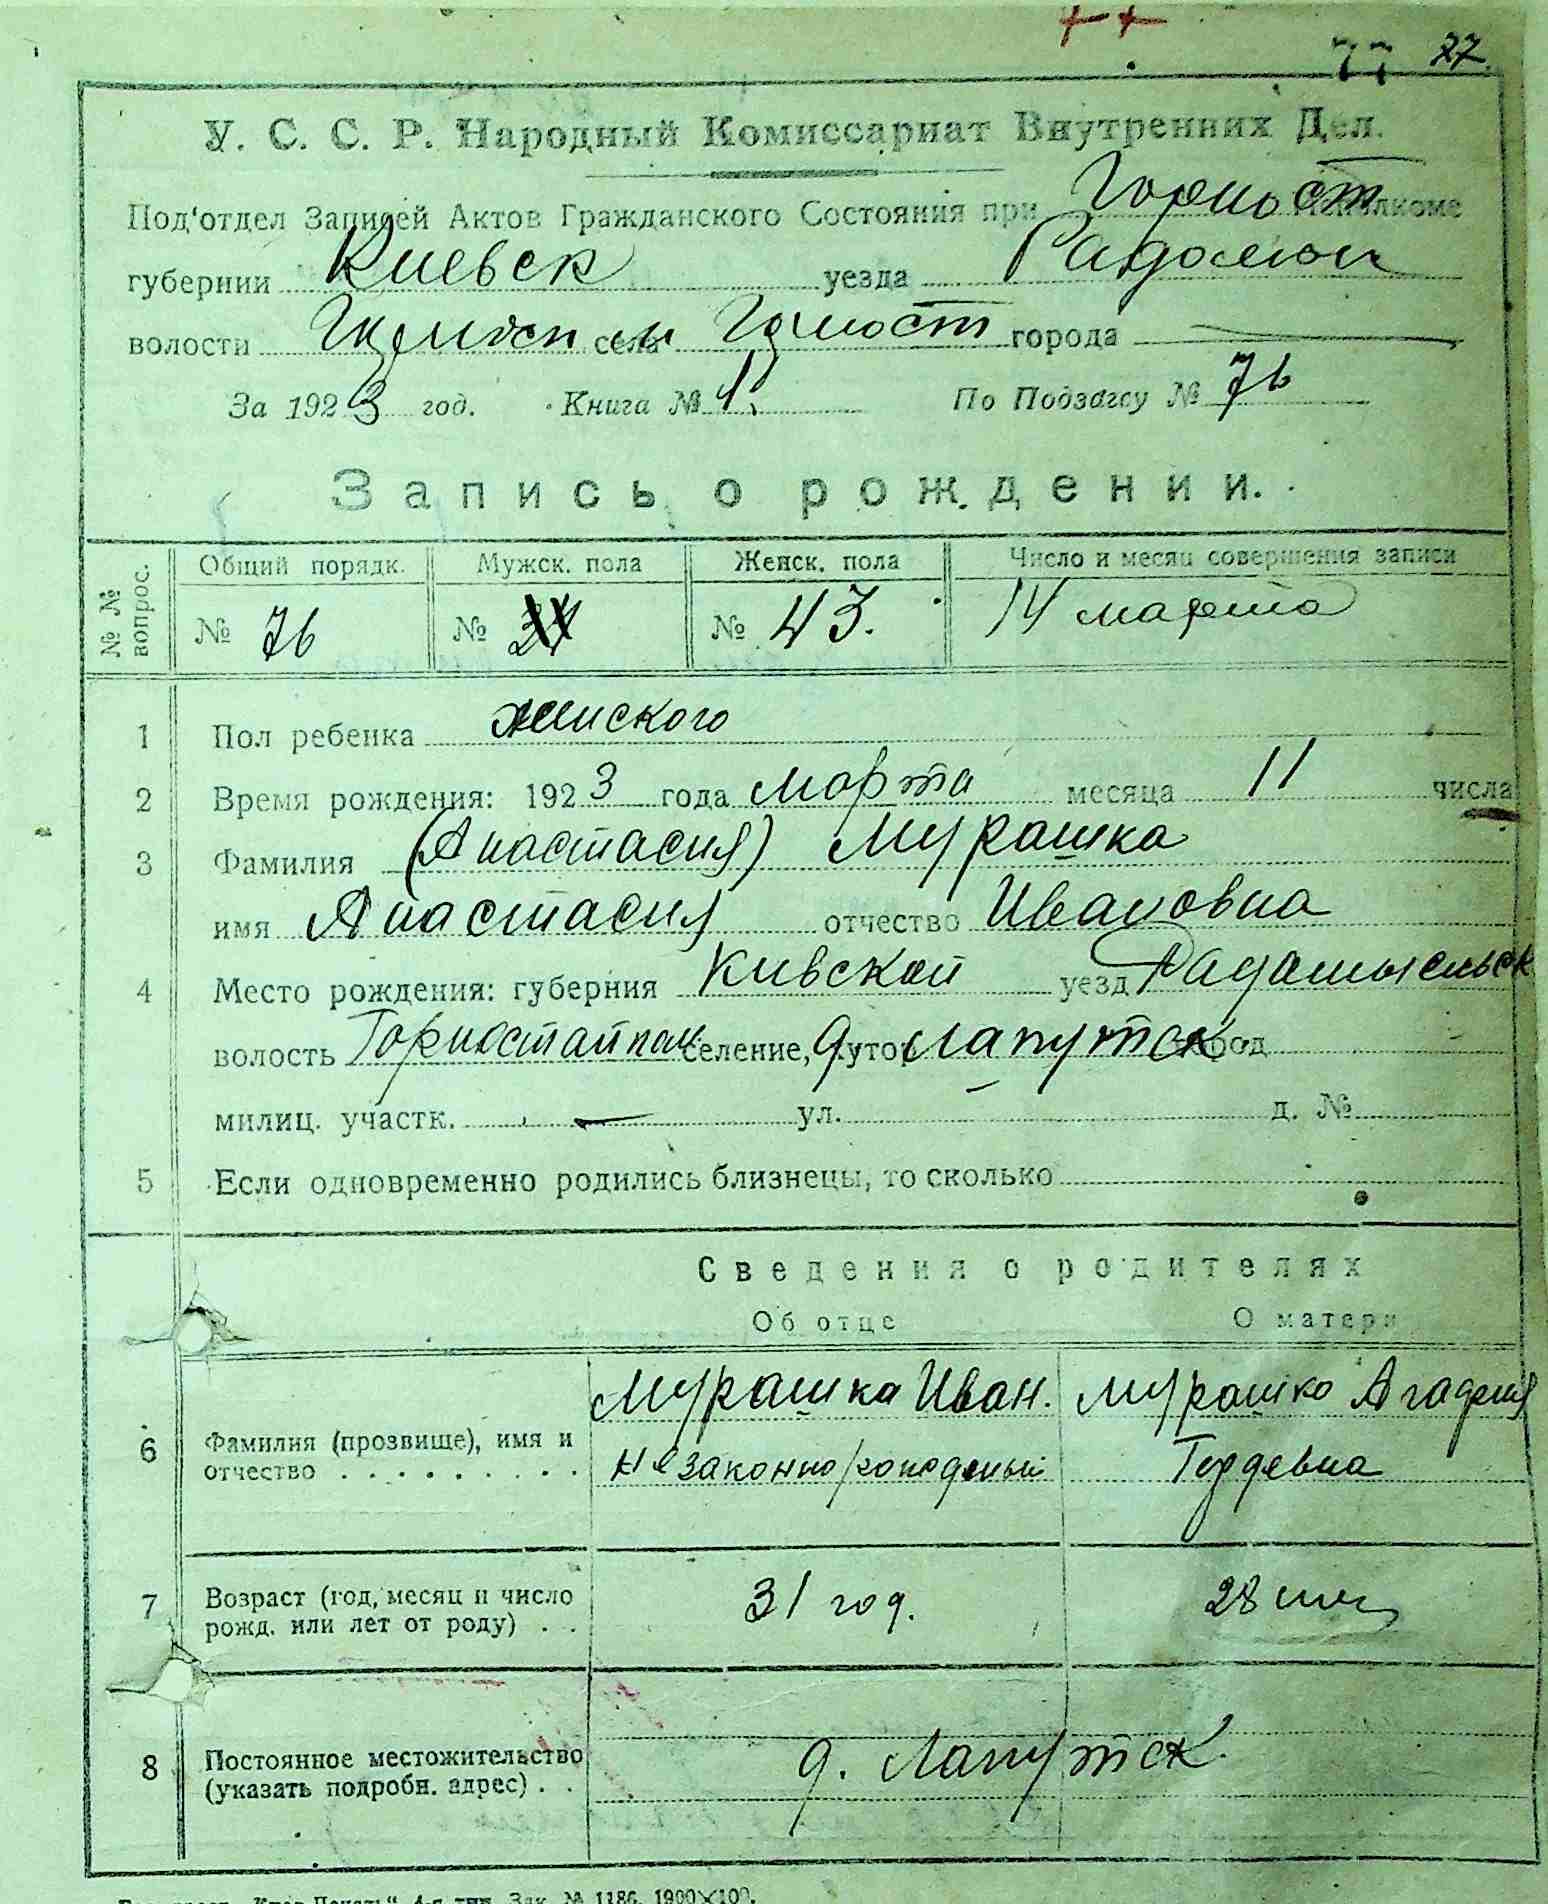 77 77.
У. С. С. Р. Народный Комиссариат Внутренних Дел.
Под'отдел Записей Актов Гражданского Состояния при Горност Исполкоме
губернии Киевск уезда Радомы
волости села Горност города
За 1923 год. Книга № 1. По Подзагсу № 76
Запись о рождении.
№ № вопрос. Общий порядк. Мужск. пола Женск. пола Число и месяц совершения записи
№ 76 № № 43. 14 марта
1 Пол ребенка женского
2 Время рождения: 1923 года марта месяца 11 числа
3 Фамилия (Анастасия) Мурашка
имя Анастасия отчество Ивановна
4 Место рождения: губерния Кивской уезд Радамысльск
волость Горностайпол селение, хутор д Лапутск город
милиц. участк. — ул. д. №
5 Если одновременно родились близнецы, то сколько
Сведения о родителях
Об отце О матери
6 Фамилия (прозвище), имя и отчество Мурашка Иван. незаконнорожденый Мурашко Агафия Гордевна
7 Возраст (год, месяц и число рожд. или лет от роду) 31 год. 28 лет
8 Постоянное местожительство (указать подробн. адрес) д. Лапутск.
Печать" 4-я тип. Зак. № 1186. 1900×100.